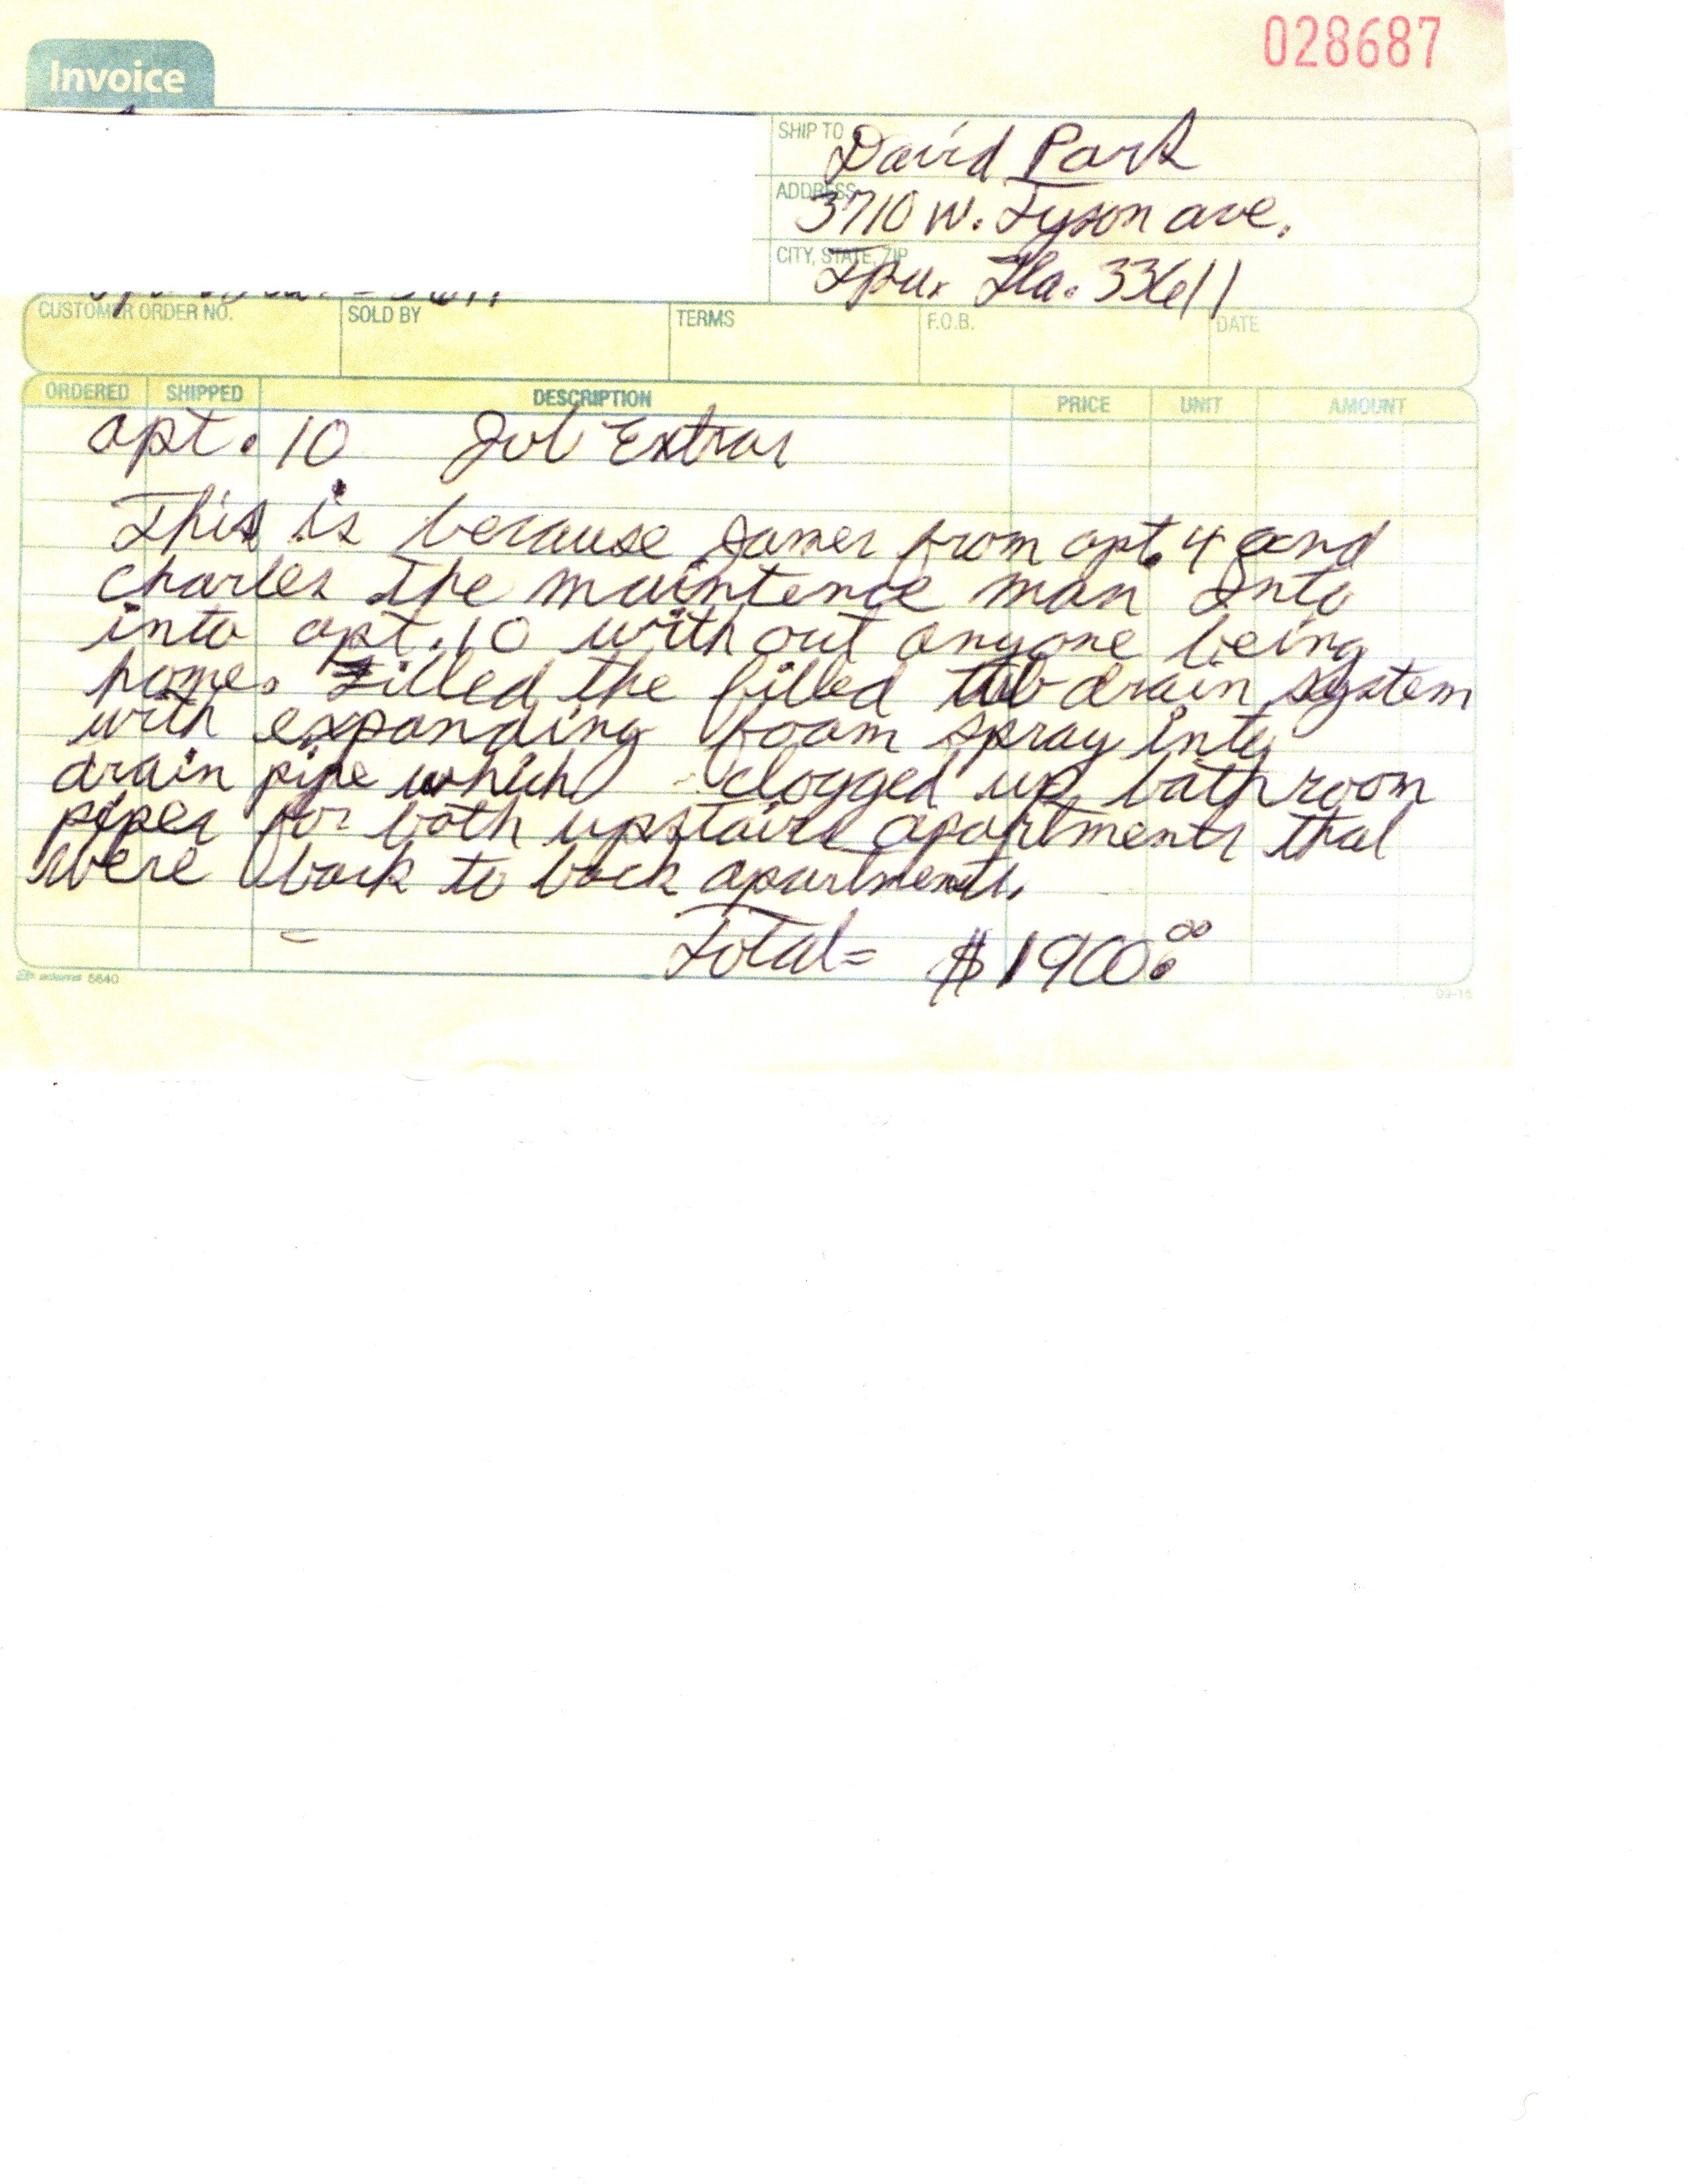 028687
Invoice
SHIP TO David Park
ADDRESS 3710 W. Tyson ave.
CITY, STATE, ZIP Tpa. Fla. 33611
CUSTOMER ORDER NO. SOLD BY TERMS F.O.B. DATE
ORDERED SHIPPED DESCRIPTION PRICE UNIT AMOUNT
apt. 10 Job Extras
This is because James from apt. 4 and
Charles the maintence man Into
into apt. 10 with out anyone being
home. Filled the filled tub drain system
with expanding foam spray into
drain pipe which clogged up bathroom
pipes for both upstairs apartments that
were back to back apartments.
Total = $1900.00
adams 5840
09-16